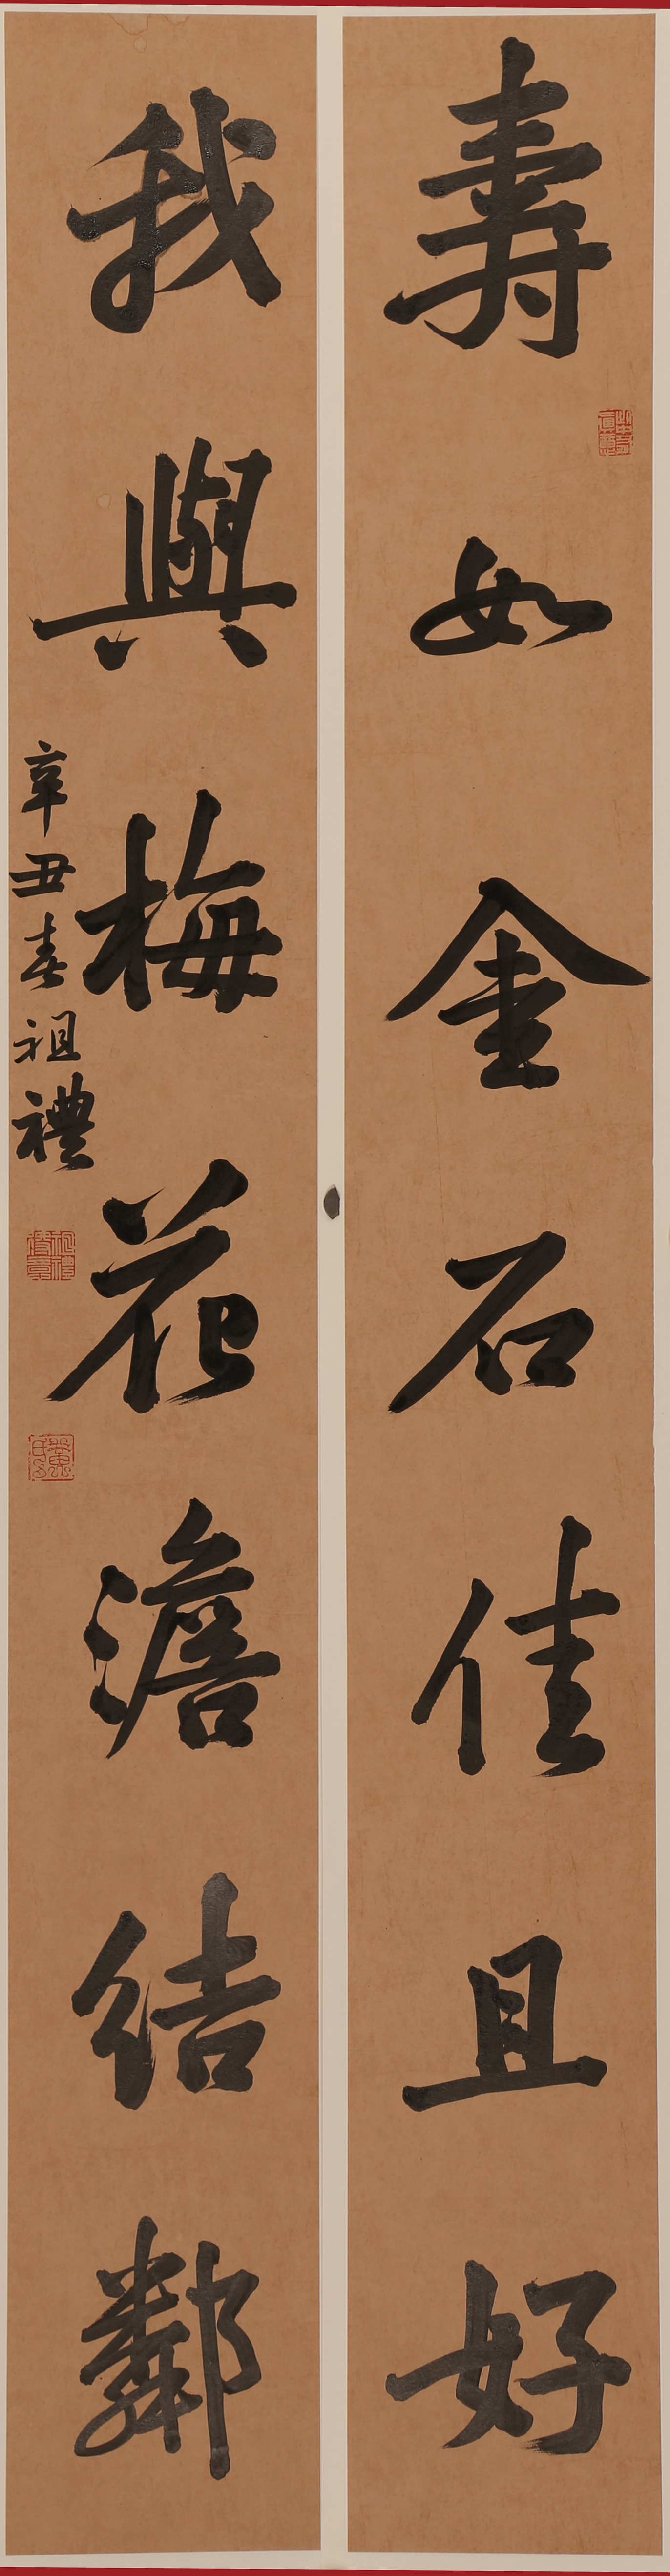 壽如金石佳且好
我與梅花澹結鄰
辛丑春祖禮